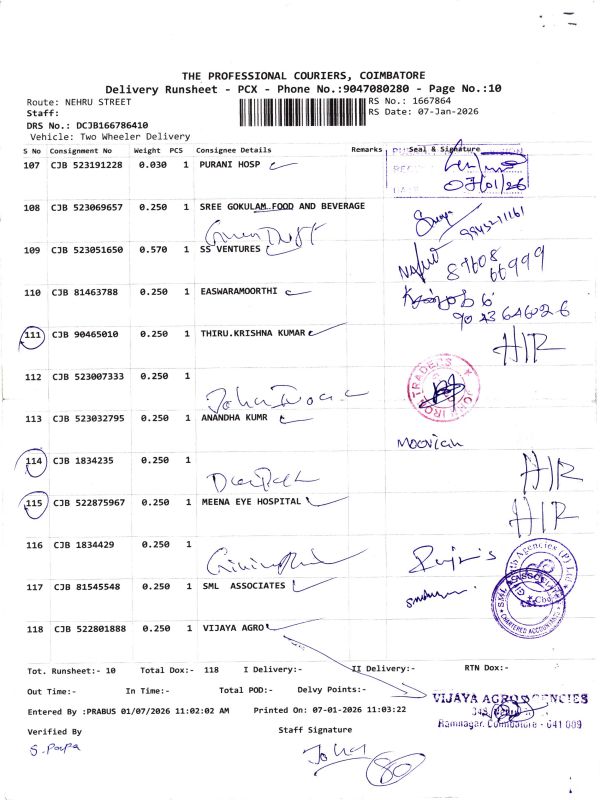 THE PROFESSIONAL COURIERS, COIMBATORE
Delivery Runsheet - PCX - Phone No.:9047080280 - Page No.:10
Route: NEHRU STREET RS No.: 1667864
Staff: RS Date: 07-Jan-2026
DRS No.: DCJB166786410
Vehicle: Two Wheeler Delivery
S No Consignment No Weight PCS Consignee Details Remarks Seal & Signature
107 CJB 523191228 0.030 1 PURANI HOSP
07/01/26
108 CJB 523069657 0.250 1 SREE GOKULAM FOOD AND BEVERAGE
109 CJB 523051650 0.570 1 SS VENTURES
87608
66999
110 CJB 81463788 0.250 1 EASWARAMOORTHI
111 CJB 90465010 0.250 1 THIRU.KRISHNA KUMAR H/R
112 CJB 523007333 0.250 1
113 CJB 523032795 0.250 1 ANANDHA KUMR
114 CJB 1834235 0.250 1 H/R
115 CJB 522875967 0.250 1 MEENA EYE HOSPITAL H/R
116 CJB 1834429 0.250 1
117 CJB 81545548 0.250 1 SML ASSOCIATES
CHARTERED ACCOUNTANTS
118 CJB 522801888 0.250 1 VIJAYA AGRO
Tot. Runsheet:- 10 Total Dox:- 118 I Delivery:- II Delivery:- RTN Dox:-
Out Time:- In Time:- Total POD:- Delvy Points:-
VIJAYA AGRO AGENCIES
Ramnagar, Coimbatore - 641 009
Entered By :PRABUS 01/07/2026 11:02:02 AM Printed On: 07-01-2026 11:03:22
Verified By Staff Signature